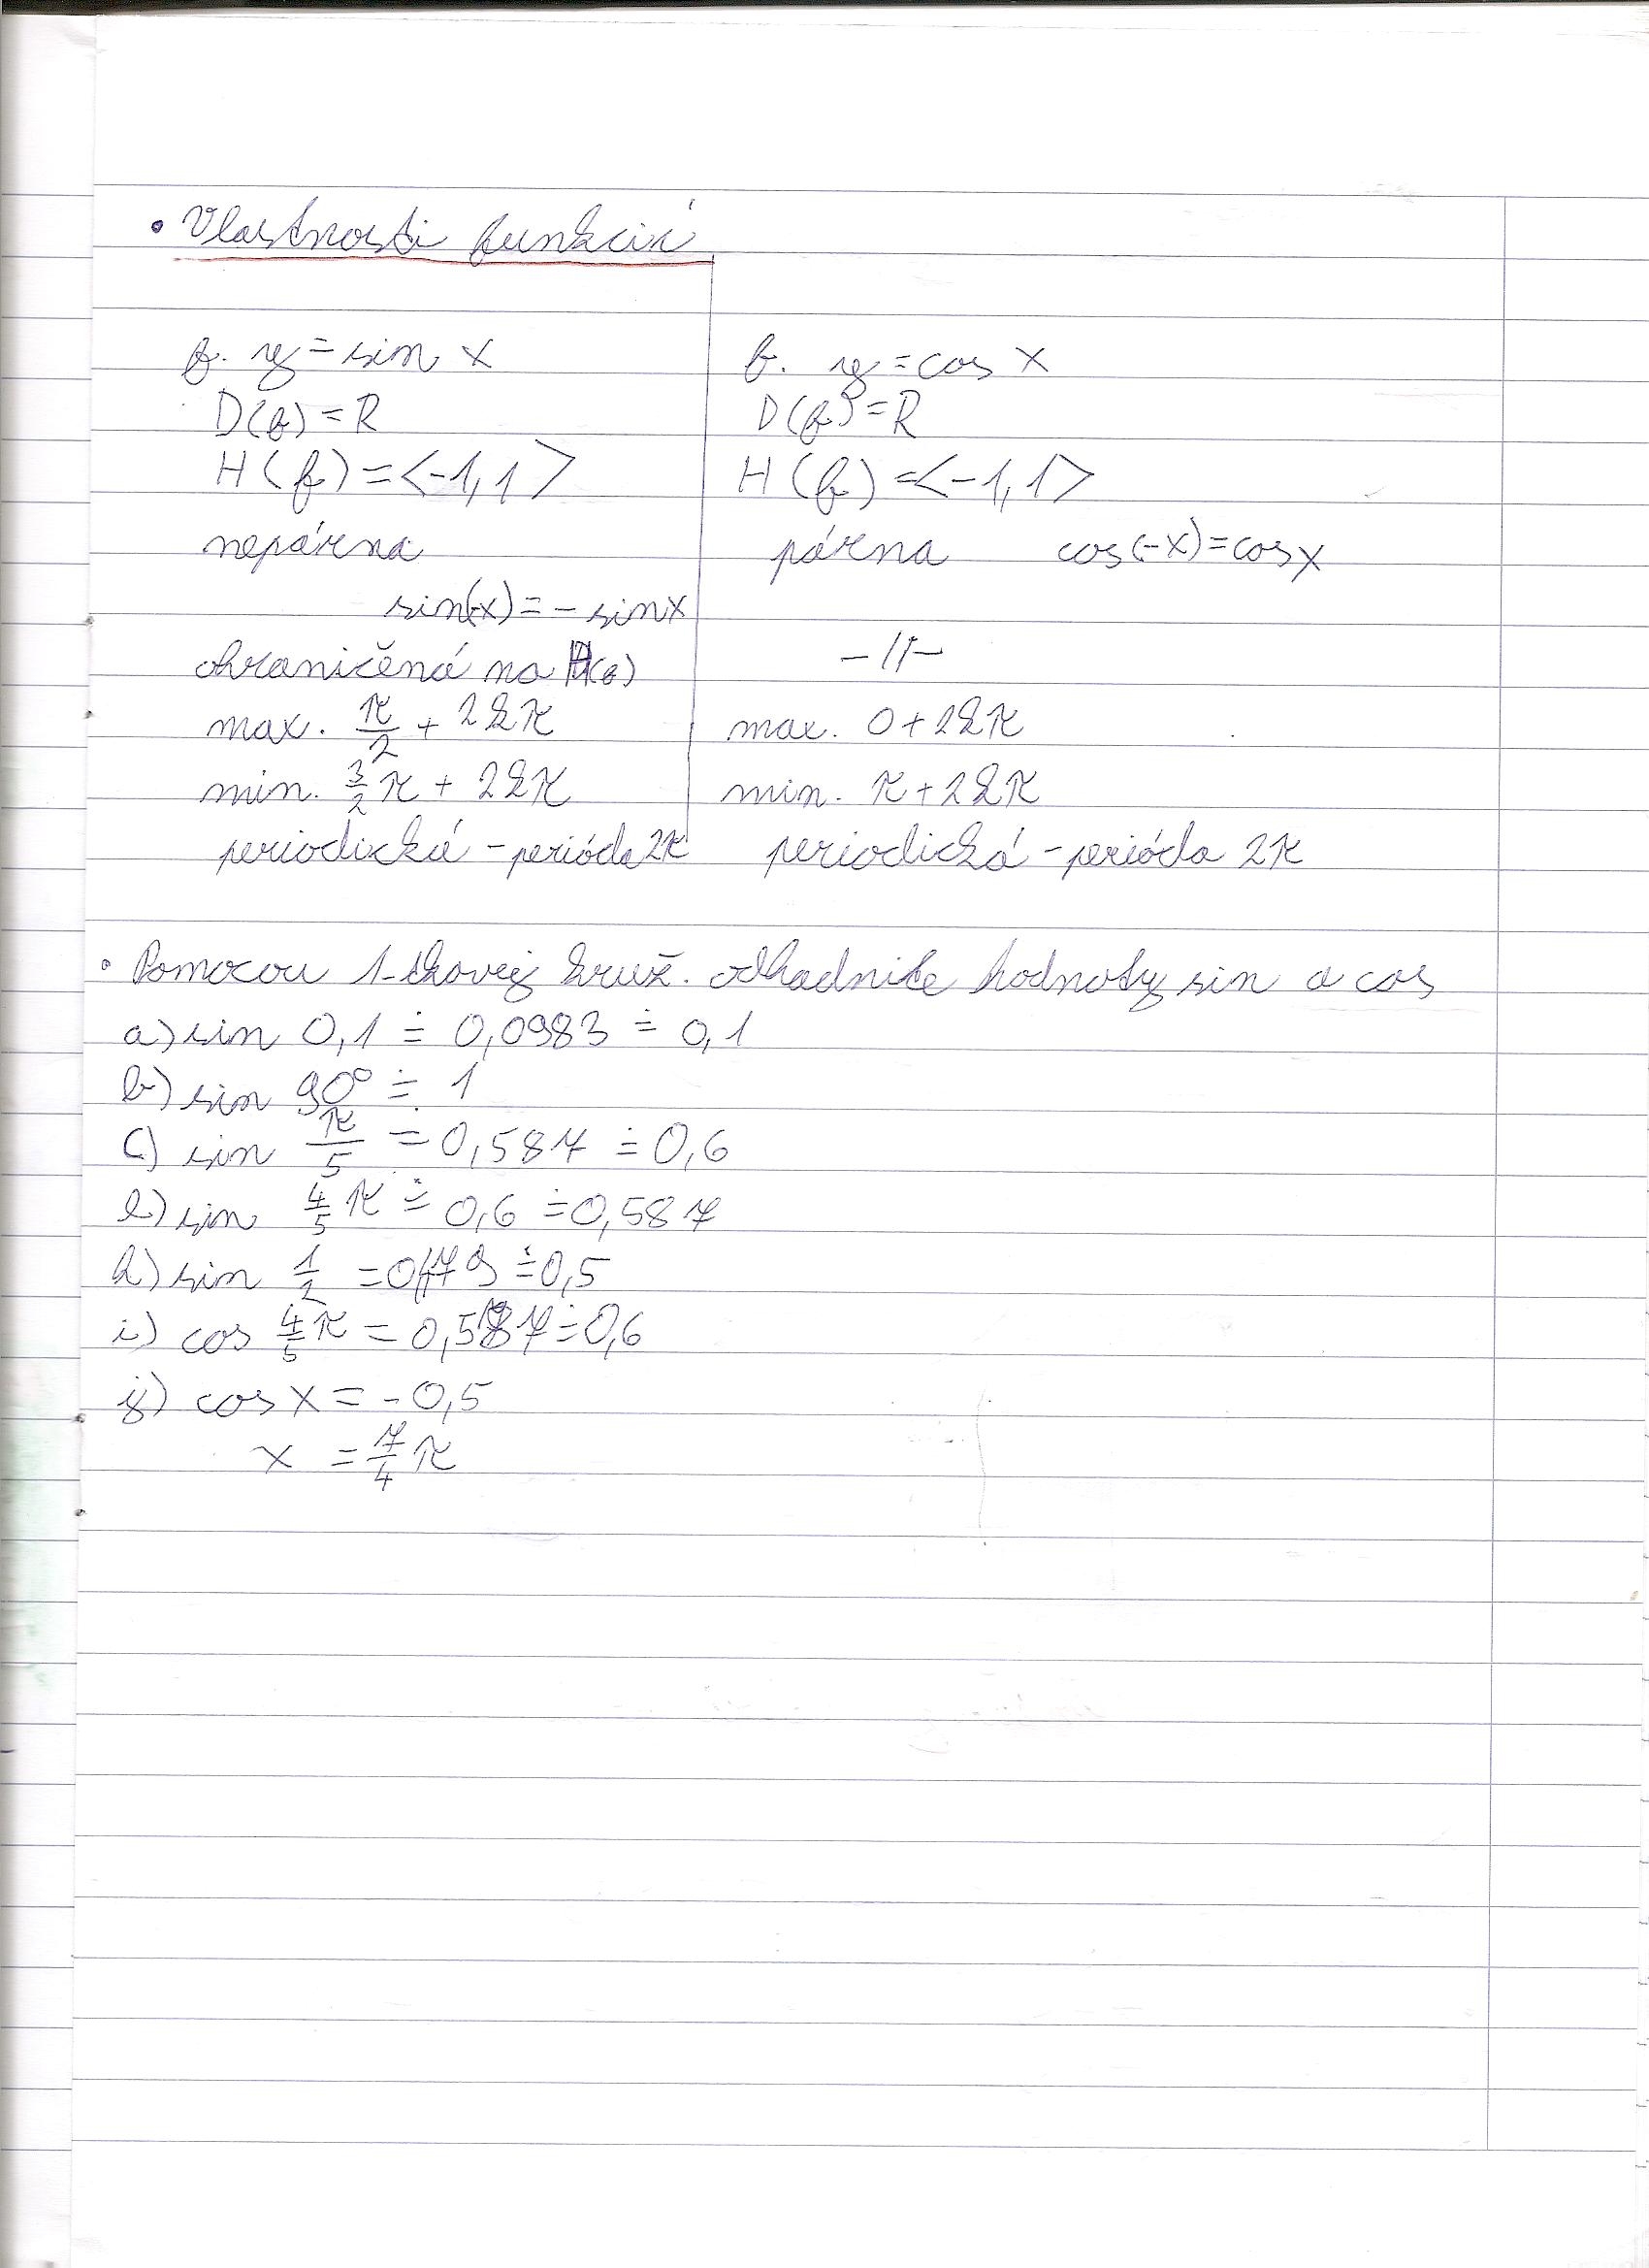 • Vlastnosti funkcií
f. y = sin x
D(f) = R
H(f) = <-1,1>
nepárna
sin(-x) = - sin x
ohraničená na H(f)
max. π/2 + 2kπ
min. 3/2 π + 2kπ
periodická - perióda 2π
f. y = cos x
D(f) = R
H(f) = <-1,1>
párna cos(-x) = cos x
-//-
max. 0 + 2kπ
min. π + 2kπ
periodická - perióda 2π
• Pomocou 1-tkovej kruž. odhadnite hodnoty sin a cos
a) sin 0,1 ≐ 0,0983 ≐ 0,1
b) sin 90° ≐ 1
c) sin π/5 = 0,587 ≐ 0,6
e) sin 4/5 π ≐ 0,6 ≐ 0,587
h) sin 1/2 = 0,479 ≐ 0,5
i) cos 4/5 π = 0,587 ≐ 0,6
j) cos x = - 0,5
x = 7/4 π